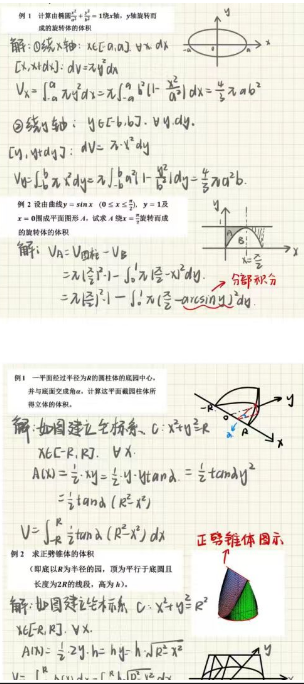 例 1 计算由椭圆x²/a²+y²/b²=1绕x轴，y轴旋转而
成的旋转体的体积
解:①绕x轴: x∈[-a,a] ∀x, dx
[x,x+dx]: dV=πy²dx
Vx=∫₋ₐᵃ πy²dx=π∫₋ₐᵃ b²(1-x²/a²)dx=4/3 πab²
②绕y轴: y∈[-b,b]. ∀y.dy.
[y,y+dy]: dV=π·x²dy
Vy=∫₋bᵇ πx²dy=π∫₋bᵇ a²(1-y²/b²)dy=4/3 πa²b.
y
-a
a
x
例 2 设由曲线y=sinx (0≤x≤π/2), y=1及
x=0围成平面图形A, 试求A绕x=π/2旋转而成
的旋转体的体积
解: VA=V圆柱-VB
=π(π/2)²·1-∫₀¹π(π/2-x)²dy.
=π(π/2)²·1-∫₀¹π(π/2-arcsiny)²dy.
分部积分
y
1
A
B
x
x=π/2
例1 一平面经过半径为R的圆柱体的底圆中心,
并与底面交成角α. 计算这平面截圆柱体所
得立体的体积。
解:如图建立坐标系. C: x²+y²=R
x∈[-R,R]. ∀x.
A(x)=1/2·xy=1/2·y·ytanα=1/2tanαy²
=1/2tanα(R²-x²)
V=∫₋RR 1/2tanα(R²-x²)dx
-R
o
α
R
y
x
例 2 求正劈锥体的体积
(即底以R为半径的园，顶为平行于底圆且
长度为2R的线段，高为h)。
正劈锥体图示
解:如图建立坐标系 C: x²+y²=R²
x∈[-R,R]. ∀x.
A(x)=1/2·2y·h=hy=h·√R²-x²
y